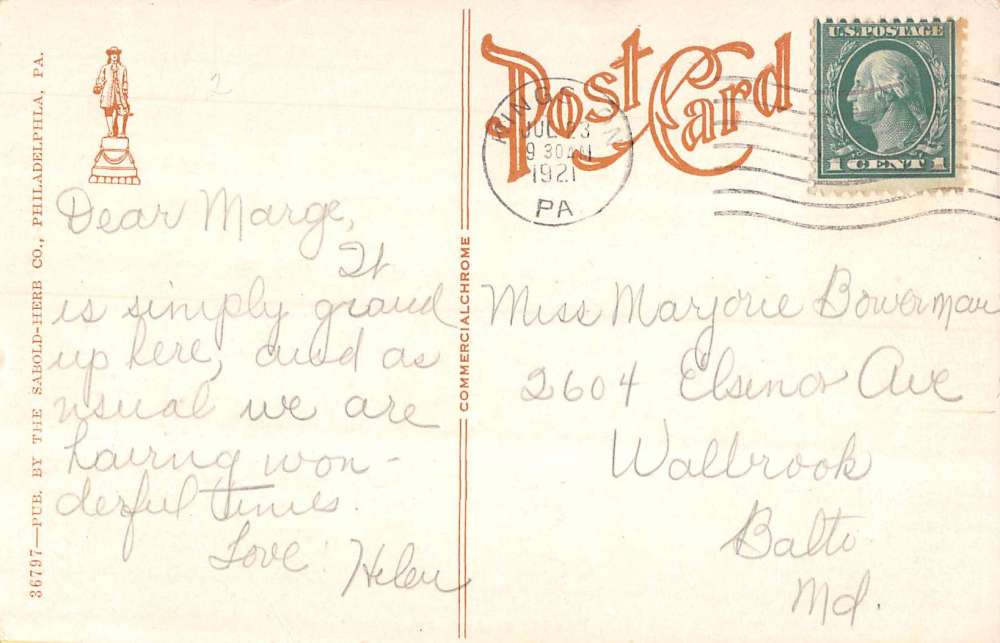 36797—PUB. BY THE SABOLD-HERB CO., PHILADELPHIA, PA.
Dear Marge,
It
is simply grand
up here, and as
usual we are
having won-
derful times.
Love
Helen
COMMERCIALCHROME
Post Card
KINGSTON
JUL 23
9 30 AM
1921
PA
U.S. POSTAGE
1 CENT 1
Miss Marjorie Bowerman
2604 Elsinor Ave
Walbrook
Balto
Md.